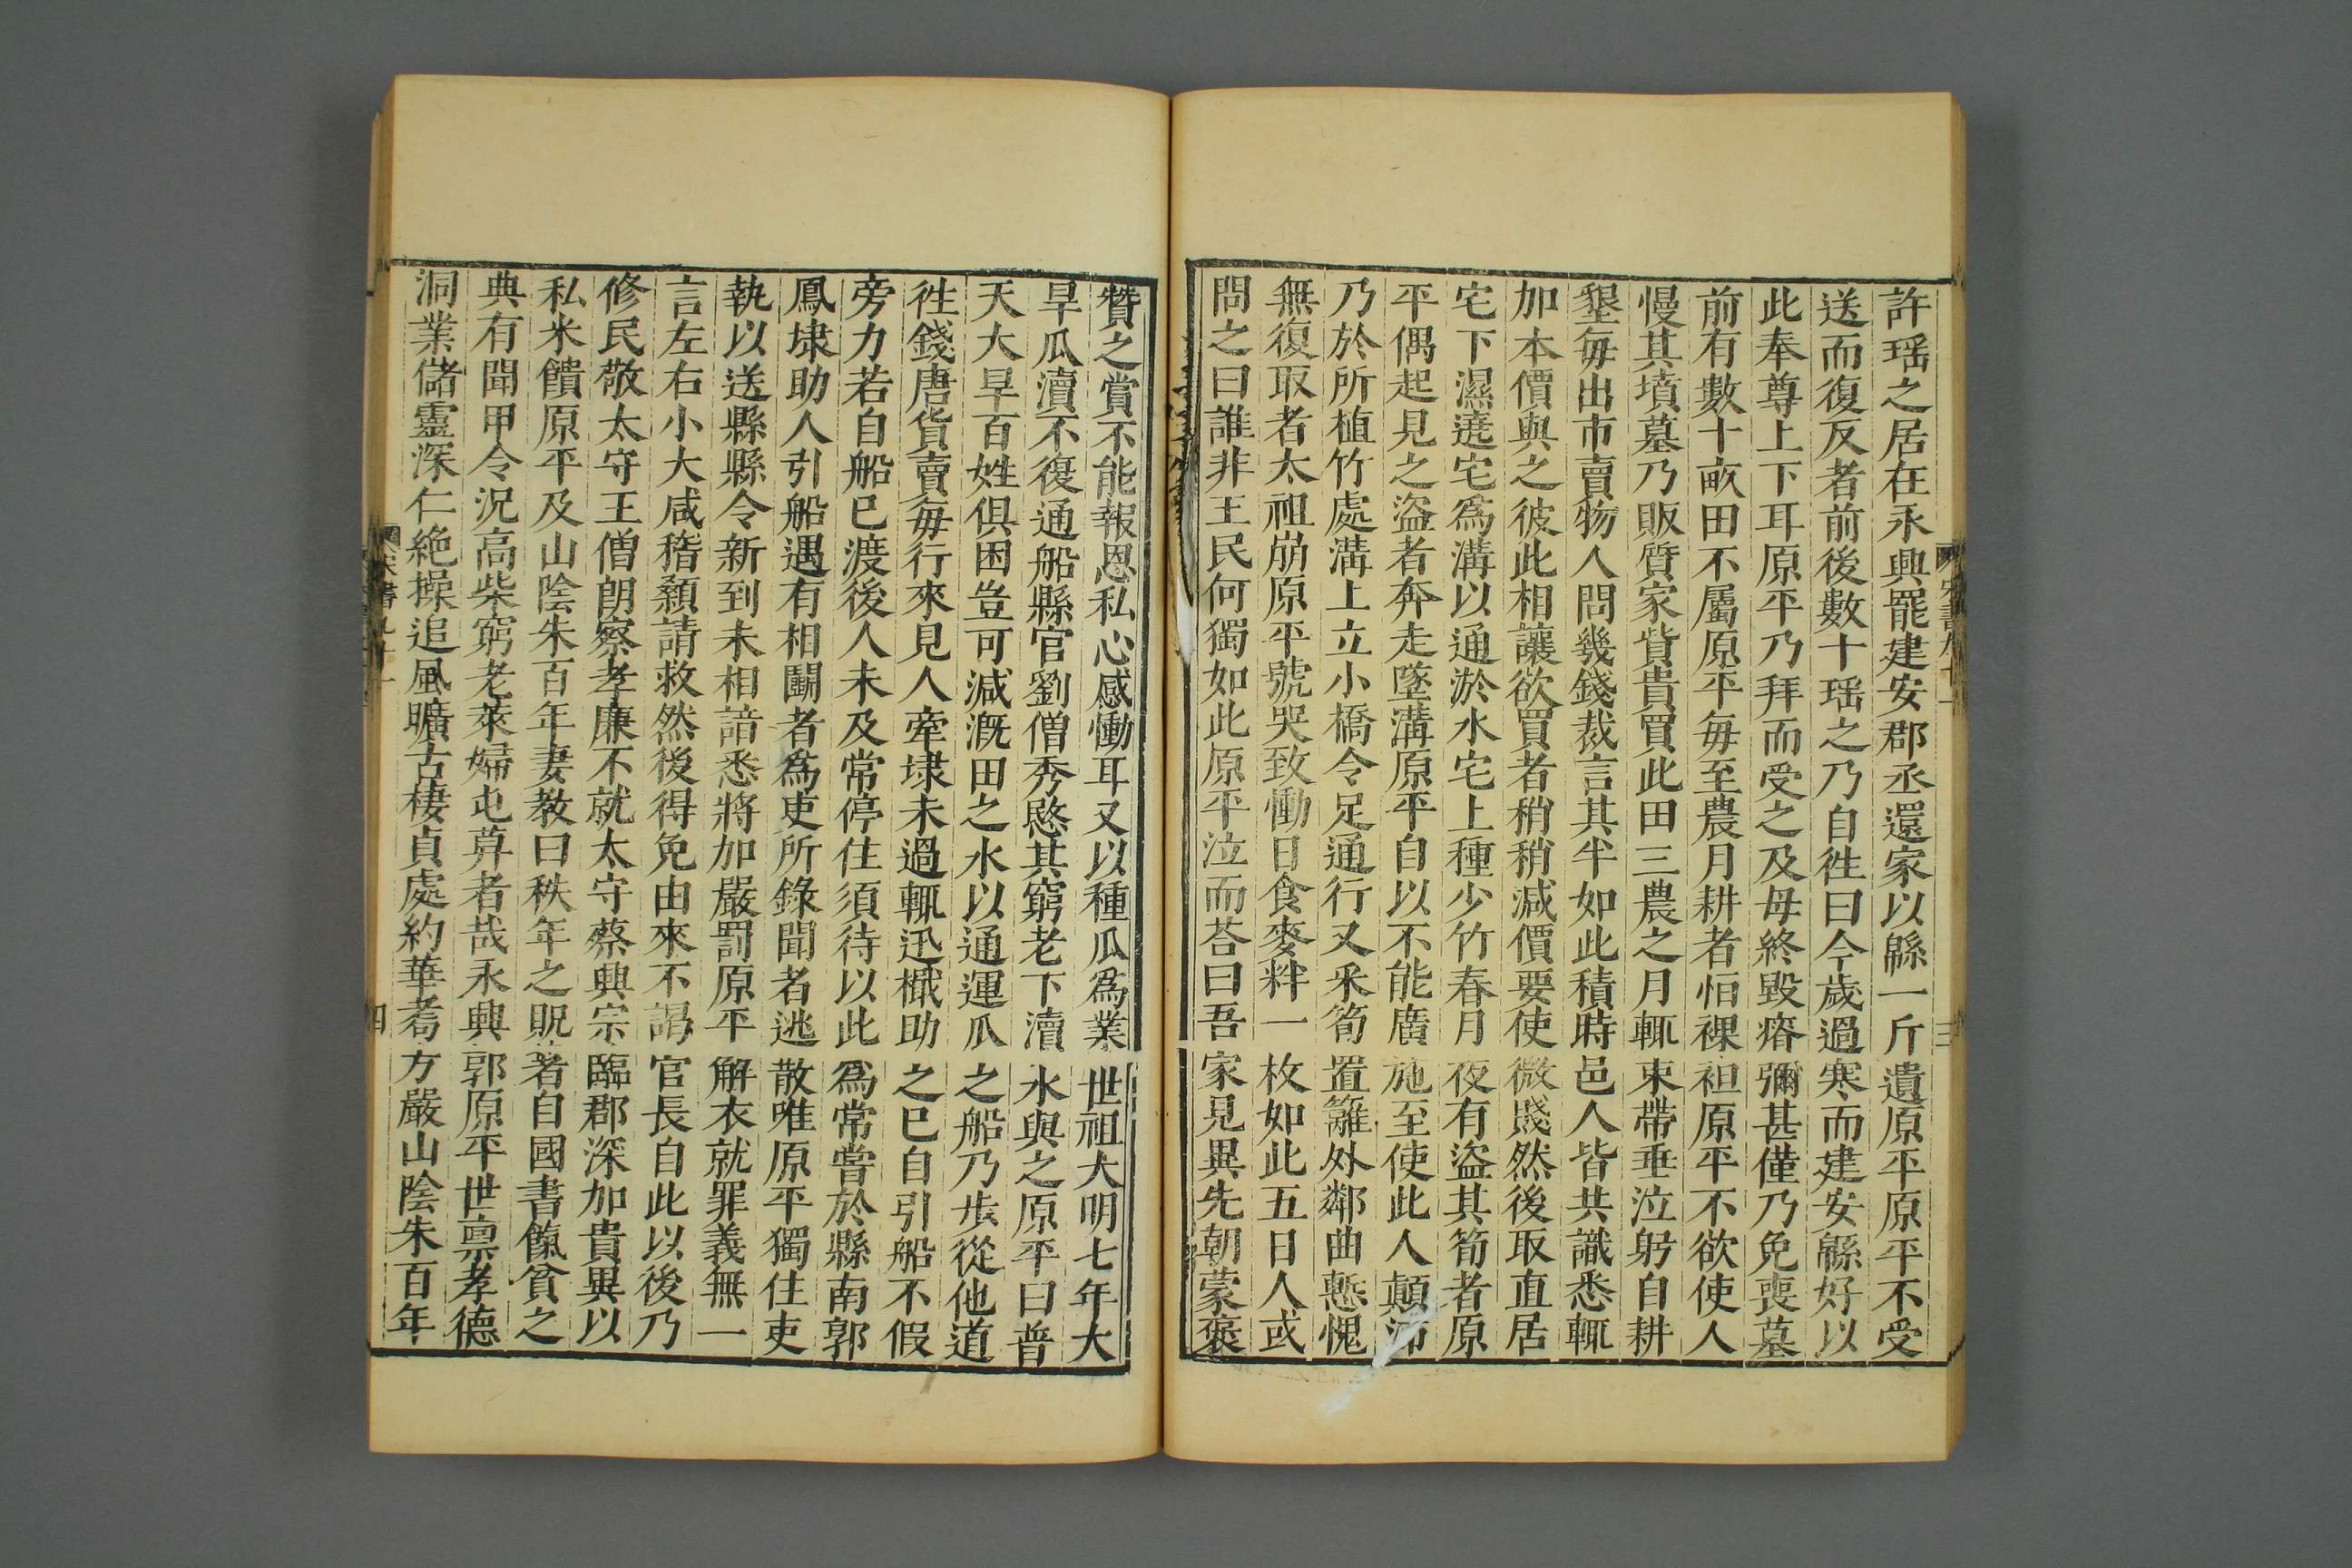 許瑶之居在永興罷建安郡丞還家以緜一斤遺原平原平不受
送而復反者前後數十瑶之乃自徃曰今歲過寒而建安緜好以
此奉尊上下耳原平乃拜而受之及母終毀瘠彌甚僅乃免喪墓
前有數十畝田不屬原平毎至農月耕者怕裸袒原平不欲使人
慢其墳墓乃販質家貲貴買此田三農之月輒束帶垂泣躬自耕
墾毎出市賣物人問幾錢裁言其半如此積時邑人皆共識悉輒
加本價與之彼此相讓欲買者稍稍減價要使微賤然後取直居
宅下濕遶宅爲溝以通淤水宅上種少竹春月夜有盜其筍者原
平偶起見之盜者奔走墜溝原平自以不能廣施至使此人顛沛
乃於所植竹處溝上立小橋令足通行又釆筍置籬外鄰曲慙愧
無復取者太祖崩原平號哭致慟日食麥䊩一枚如此五日人或
問之曰誰非王民何獨如此原平泣而荅曰吾家見異先朝蒙褒
三
贊之賞不能報恩私心感慟耳又以種瓜爲業世祖大明七年大
旱瓜瀆不復通船縣官劉僧秀愍其窮老下瀆水與之原平曰普
天大旱百姓俱困豈可減溉田之水以通運瓜之船乃步從他道
徃錢唐貨賣毎行來見人牽埭未過輒迅檝助之巳自引船不假
旁力若自船巳渡後人未及常停住須待以此爲常嘗於縣南郭
鳳埭助人引船遇有相鬭者爲吏所錄聞者逃散唯原平獨住吏
執以送縣縣令新到未相諳悉將加嚴罰原平解衣就罪義無一
言左右小大咸稽顙請救然後得免由來不謁官長自此以後乃
修民敬太守王僧朗察孝廉不就太守蔡興宗臨郡深加貴異以
私米饋原平及山陰朱百年妻敎曰秩年之貺著自國書餼貧之
典有聞甲令況高柴窮老萊婦屯𢍆者哉永興郭原平世禀孝德
洞業儲靈深仁絶操追風曠古棲貞處約華耈方嚴山陰朱百年
四